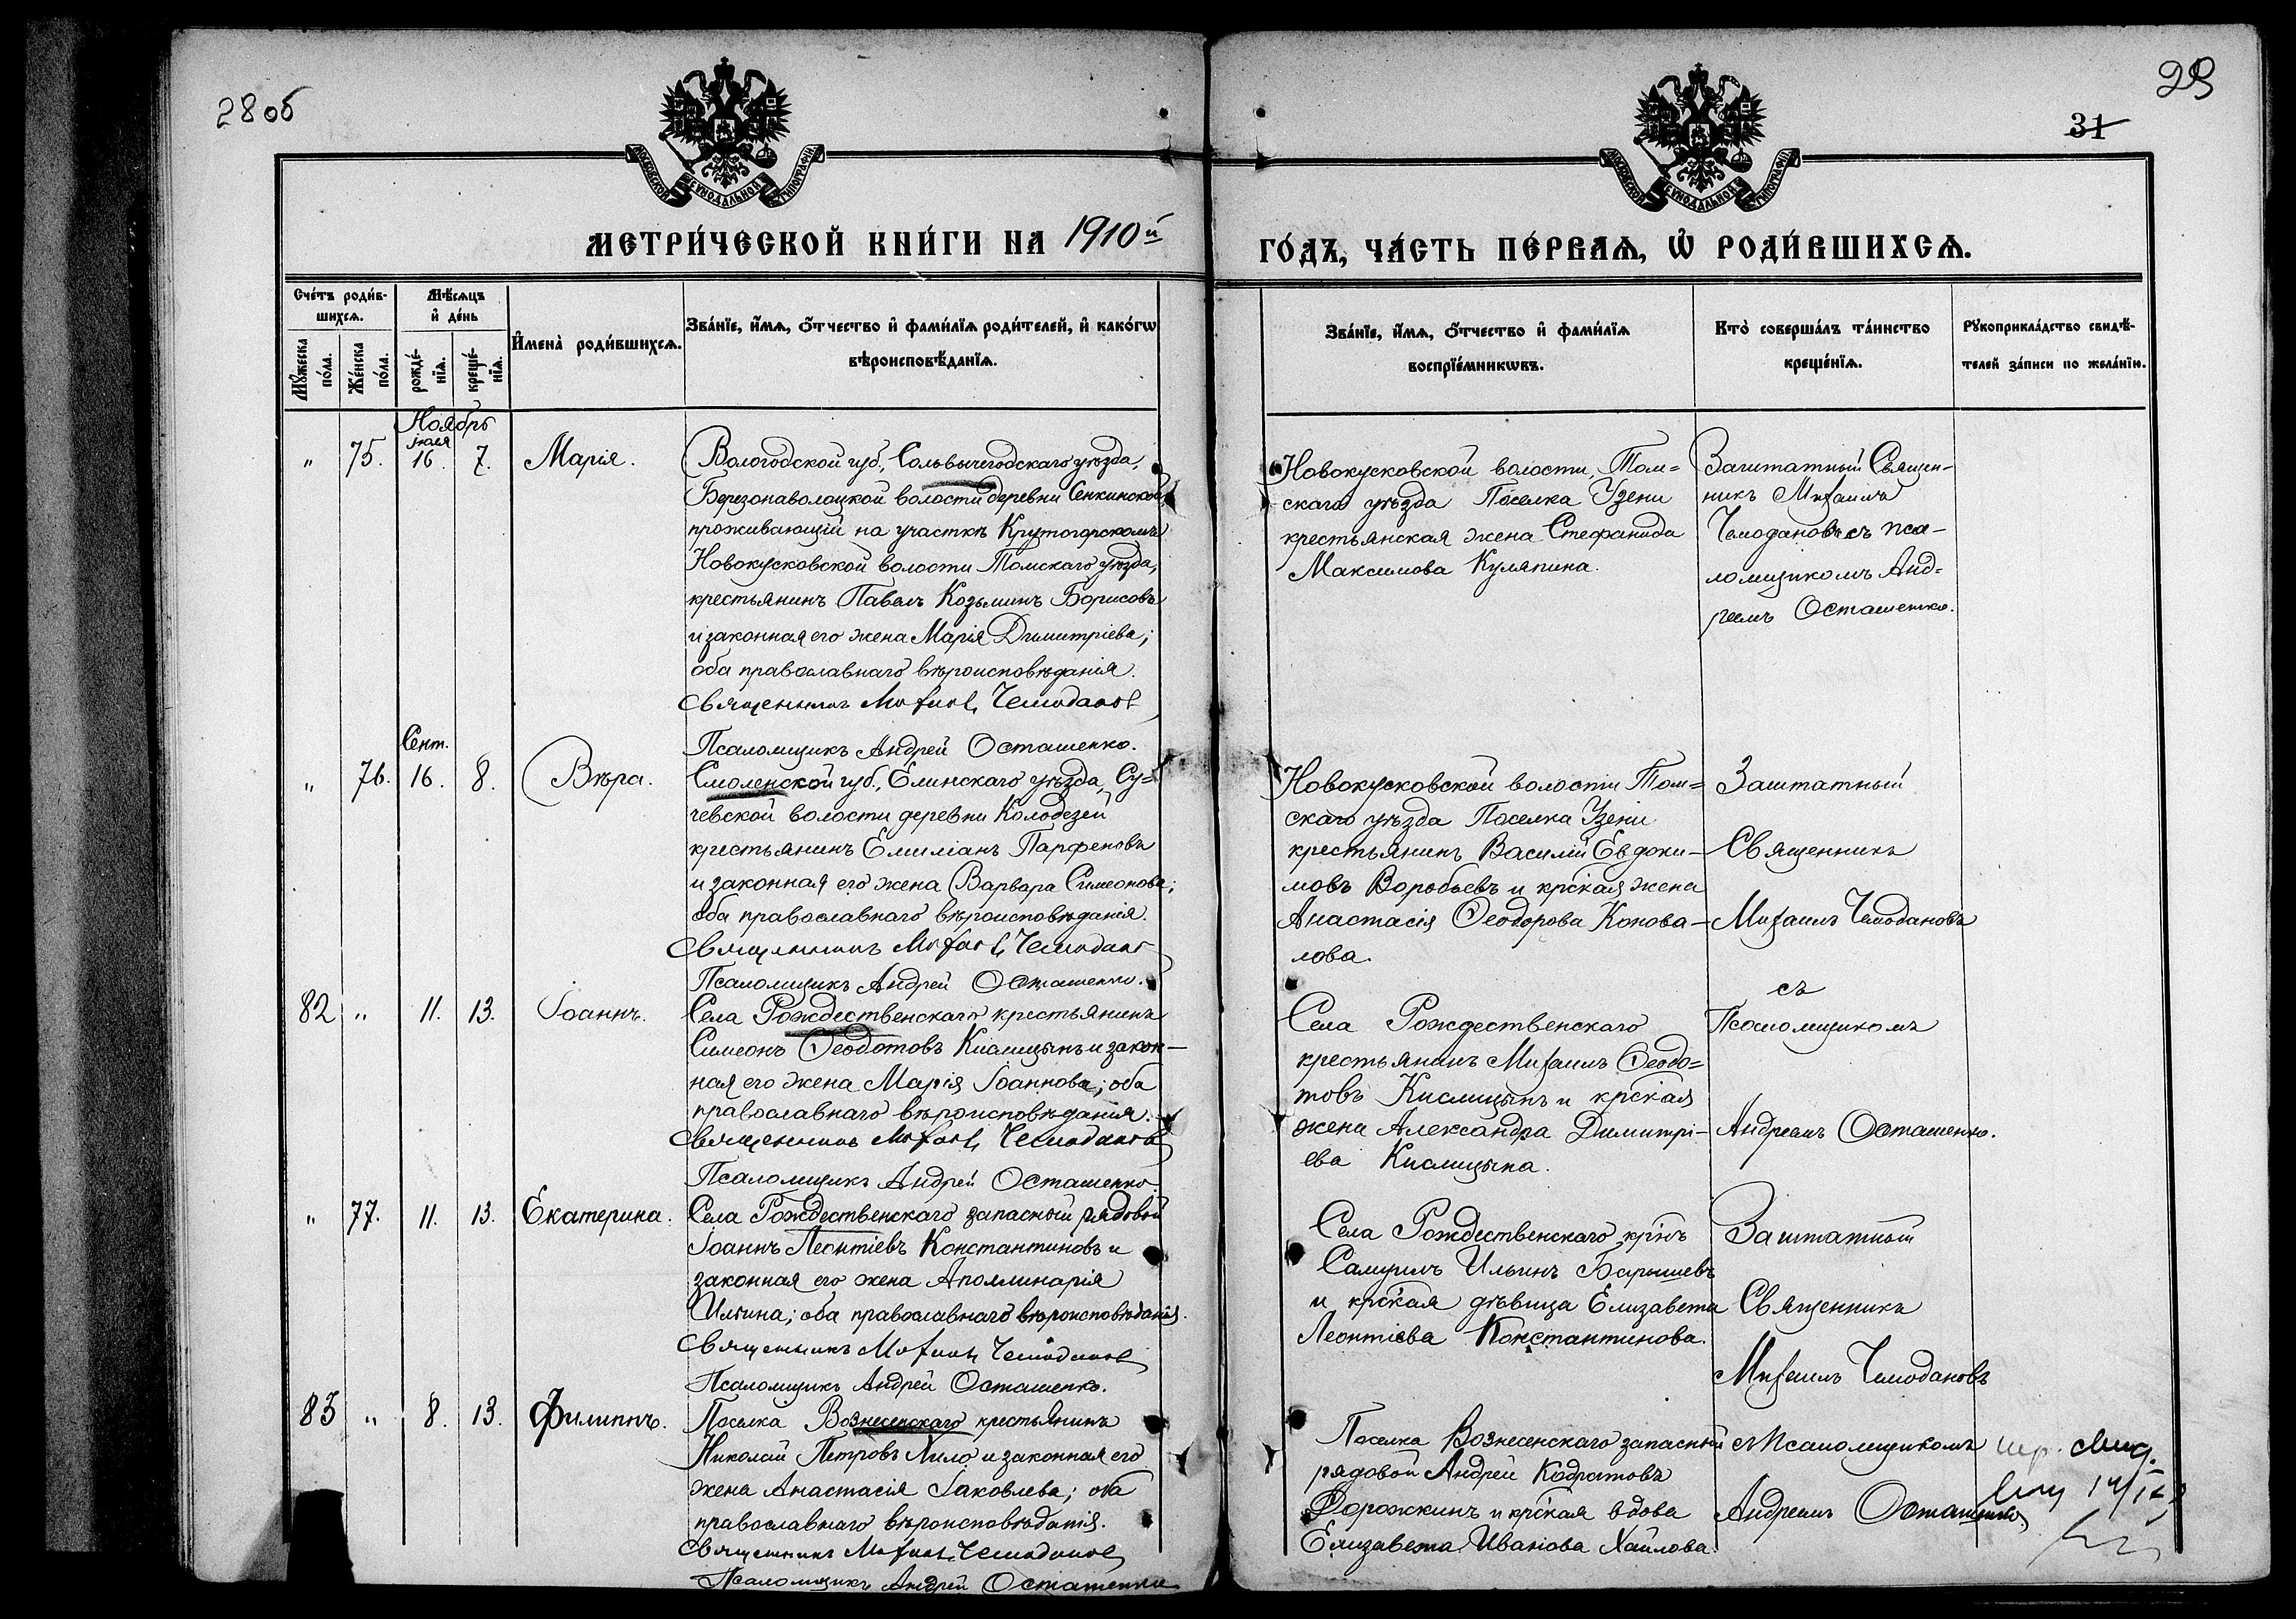 28 об
29
31
МОСКОВСКОЙ СѴНОДАЛЬНОЙ ТИПОГРАФІИ
МОСКОВСКОЙ СѴНОДАЛЬНОЙ ТИПОГРАФІИ
МЕТРИ́ЧЕСКОЙ КНИ́ГИ НА 1910й
ГО́ДЪ, ЧА́СТЬ ПЕ́РВАѦ, Ѡ҆ РОДИ́ВШИХСѦ.
Сче́тъ роди́в-
шихсѧ.
Мꙋ́жеска по́ла.
Же́нска по́ла.
Мѣ́сѧцъ
и҆ де́нь
рожде́-нїѧ.
креще́-нїѧ.
И҆мена̀ роди́вшихсѧ.
Зва́нїе, и҆́мѧ, ѻ҆́тчество и҆ фами́лїѧ роди́телей, и҆ како́гѡ
вѣроисповѣ́данїѧ.
Зва́нїе, и҆́мѧ, ѻ҆́тчество и҆ фами́лїѧ
воспрїе́мникѡвъ.
Кто̀ соверша́лъ та́инство
креще́нїѧ.
Рꙋкоприкла́дство свидѣ́-
телей за́писи по жела́нїю.
Ноябрь
іюля
" 75. 16. 7. Марія.
Вологодской губ., Сольвычегодскаго уѣзда,
Березонаволоцкой волости деревни Сенкинской
проживающій на участкѣ Крутогорскомъ
Новокусковской волости Томскаго уѣзда,
крестьянинъ Павелъ Козьминъ Борисовъ
и законная его жена Марія Димитріева;
оба православнаго вѣроисповѣданія.
Священникъ Михаилъ Чемодановъ
Псаломщикъ Андрей Осташенко.
Новокусковской волости, Том=
скаго уѣзда Поселка Узени
крестьянская жена Стефанида
Максимова Куляпина.
Заштатный Священ-
никъ Михаилъ
Чемодановъ съ пса-
ломщикомъ Анд=
реемъ Осташенко.
Сент.
" 76. 16. 8. Вѣра.
Смоленской губ., Елинскаго уѣзда, Су=
чевской волости деревни Колодезей
крестьянинъ Емиліанъ Парфеновъ
и законная его жена Варвара Симеонова;
оба православнаго вѣроисповѣданія.
Священникъ Михаилъ Чемодановъ
Псаломщикъ Андрей Осташенко.
Новокусковской волости Том=
скаго уѣзда Поселка Узени
крестьянинъ Василій Евдоки-
мовъ Воробьевъ и крская жена
Анастасія Ѳеодорова Конова-
лова.
Заштатный
Священникъ
Михаилъ Чемодановъ
съ
Псаломщикомъ
Андреемъ Осташенко.
82 " 11. 13. Іоаннъ.
Села Рождественскаго крестьянинъ
Симеонъ Ѳеодотовъ Кислицынъ и закон-
ная его жена Марія Іоаннова; оба
православнаго вѣроисповѣданія.
Священникъ Михаилъ Чемодановъ
Псаломщикъ Андрей Осташенко
Села Рождественскаго
крестьянинъ Михаилъ Ѳеодо=
товъ Кислицынъ и крская
жена Александра Димитрі-
ева Кислицына.
" 77. 11. 13. Екатерина.
Села Рождественскаго запасный рядовой
Іоаннъ Леонтіевъ Константиновъ и
законная его жена Аполлинарія
Ильина; оба православнаго вѣроисповѣданія.
Священникъ Михаилъ Чемодановъ
Псаломщикъ Андрей Осташенко.
Села Рождественскаго крнъ
Самуилъ Ильинъ Барышевъ
и крская дѣвица Елизавета
Леонтіева Константинова.
Заштатный
Священникъ
Михаилъ Чемодановъ
съ Псаломщикомъ
Андреемъ Осташенко
83 " 8. 13. Филиппъ.
Поселка Вознесенскаго крестьянинъ
Николай Петровъ Хило и законная его
жена Анастасія Іаковлева; оба
православнаго вѣроисповѣданія.
Священникъ Михаилъ Чемодановъ
Псаломщикъ Андрей Осташенко
Поселка Вознесенскаго запасный
рядовой Андрей Кодратовъ
Дорожкинъ и крская вдова
Елизавета Иванова Хайлова.